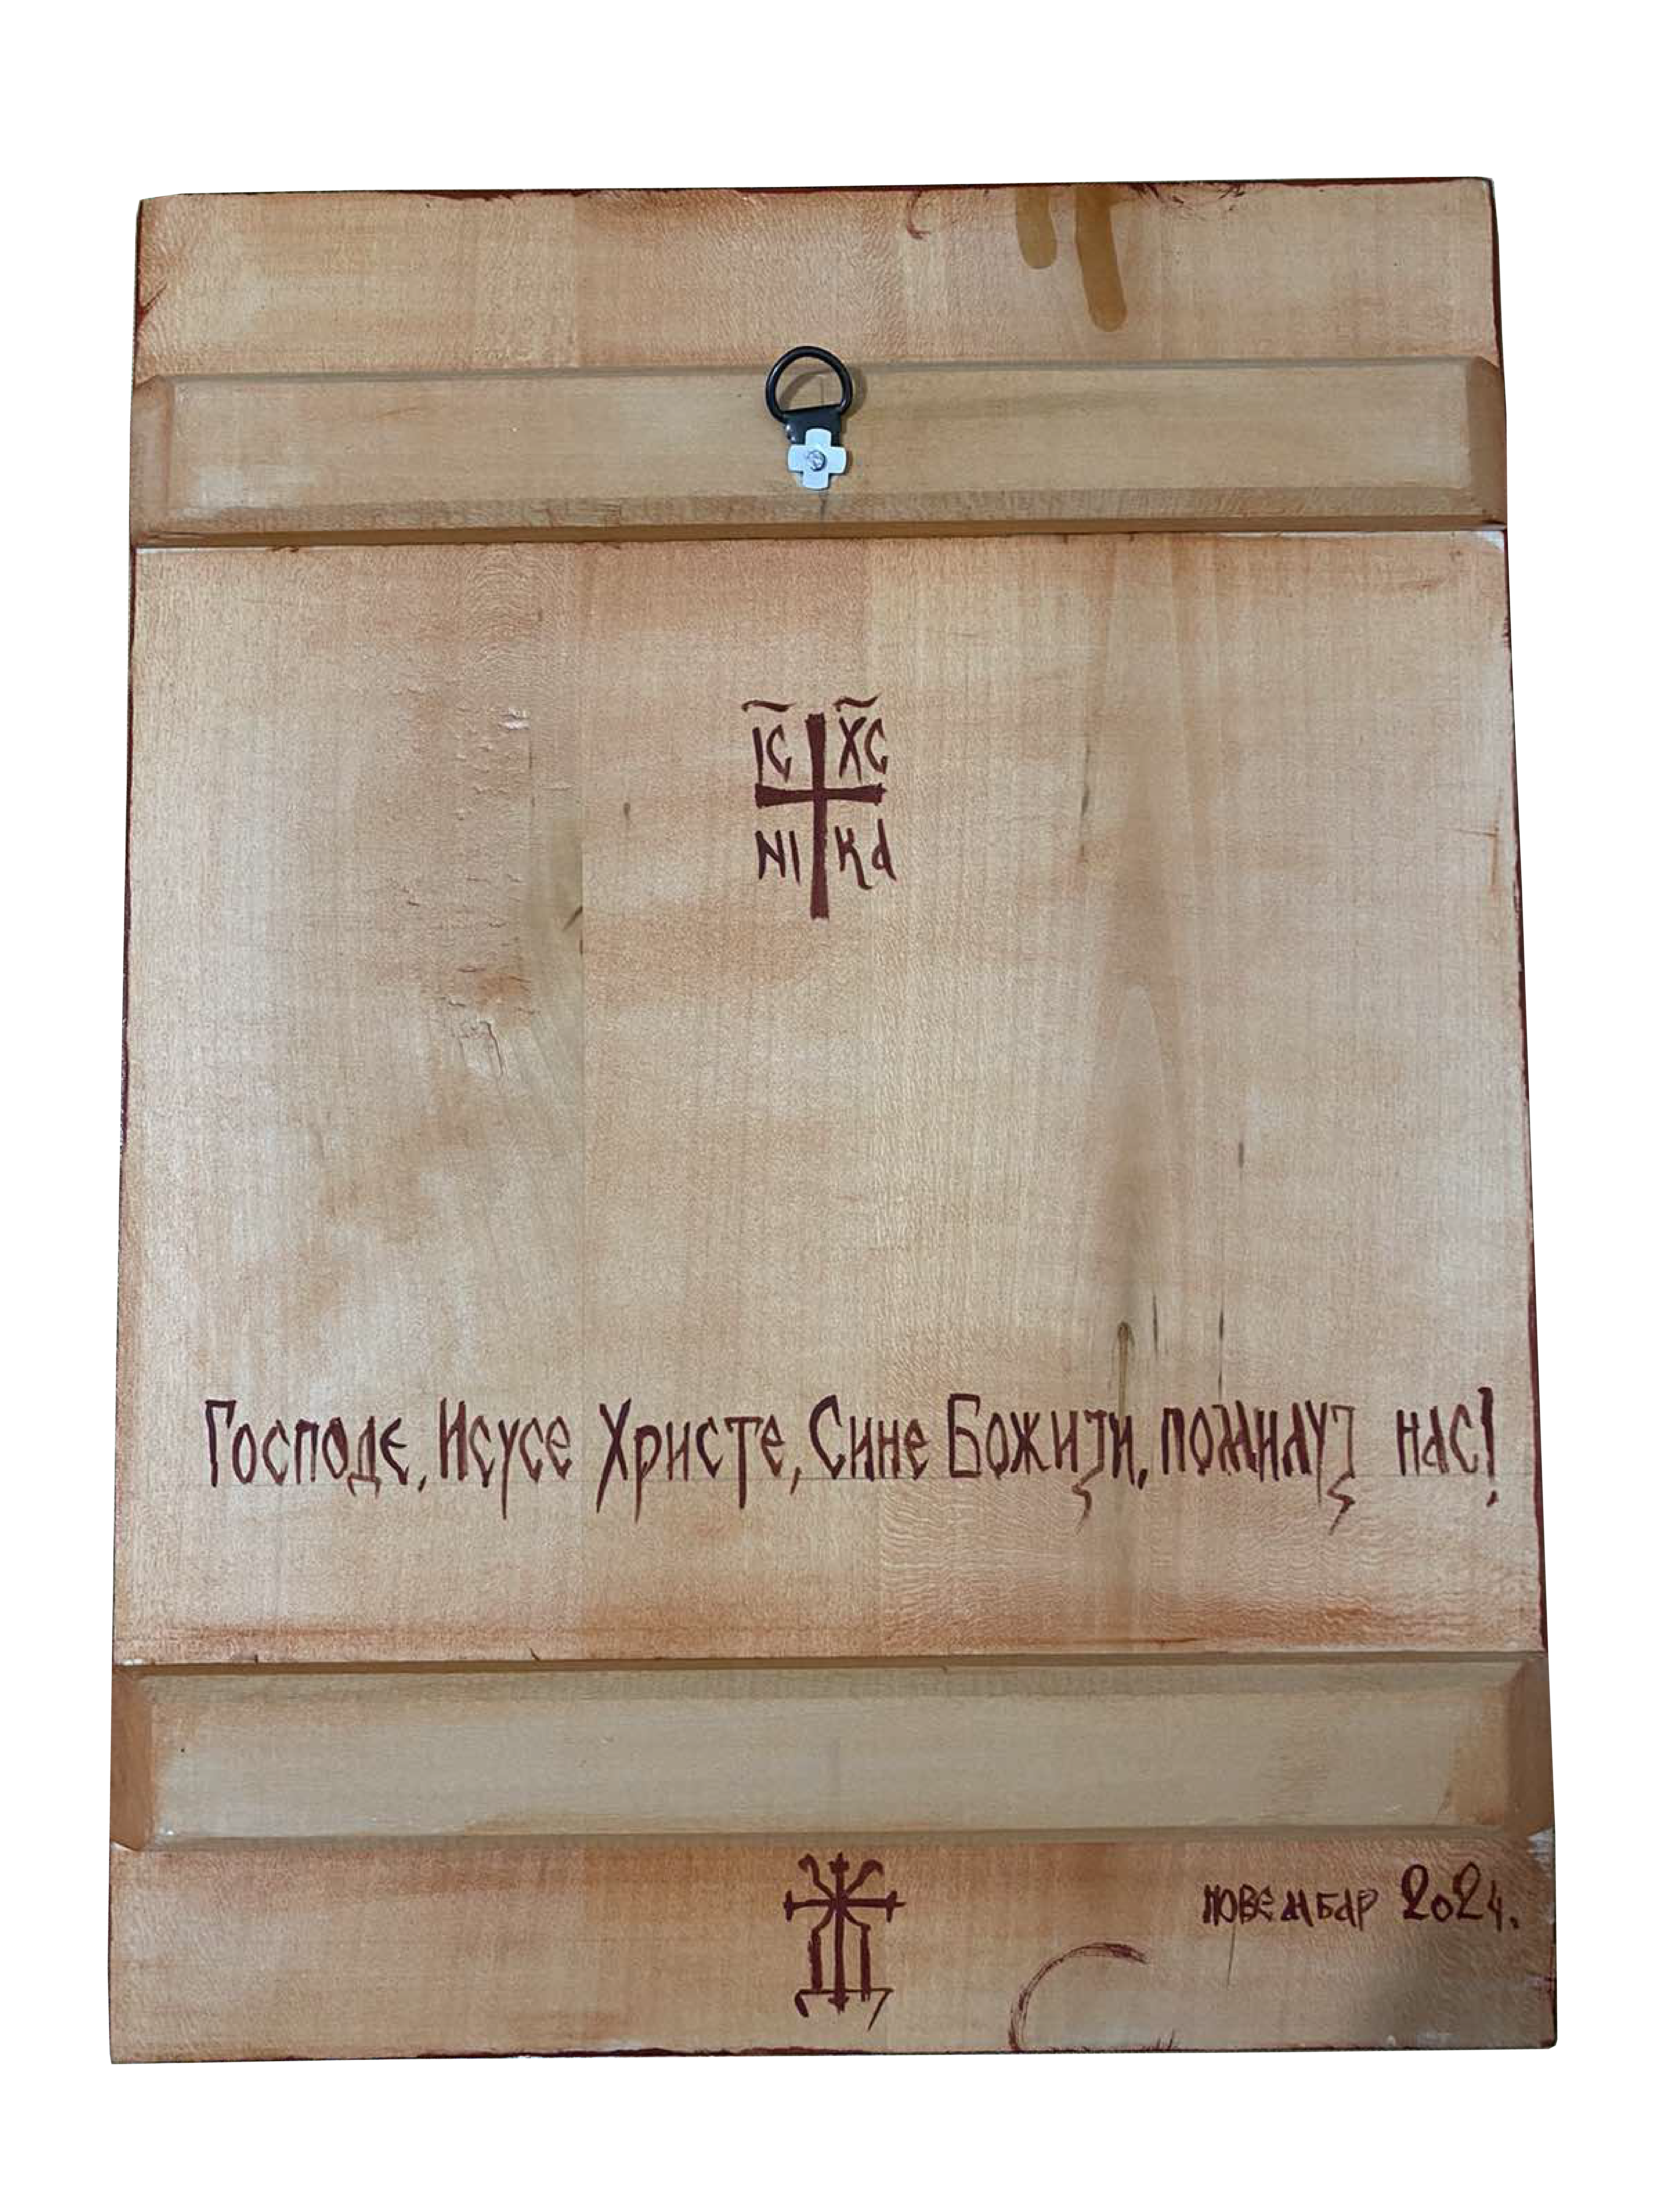 IC XC
NI KA
Господе, Исусе Христе, Сине Божији, помилуј нас!
новембар 2024.